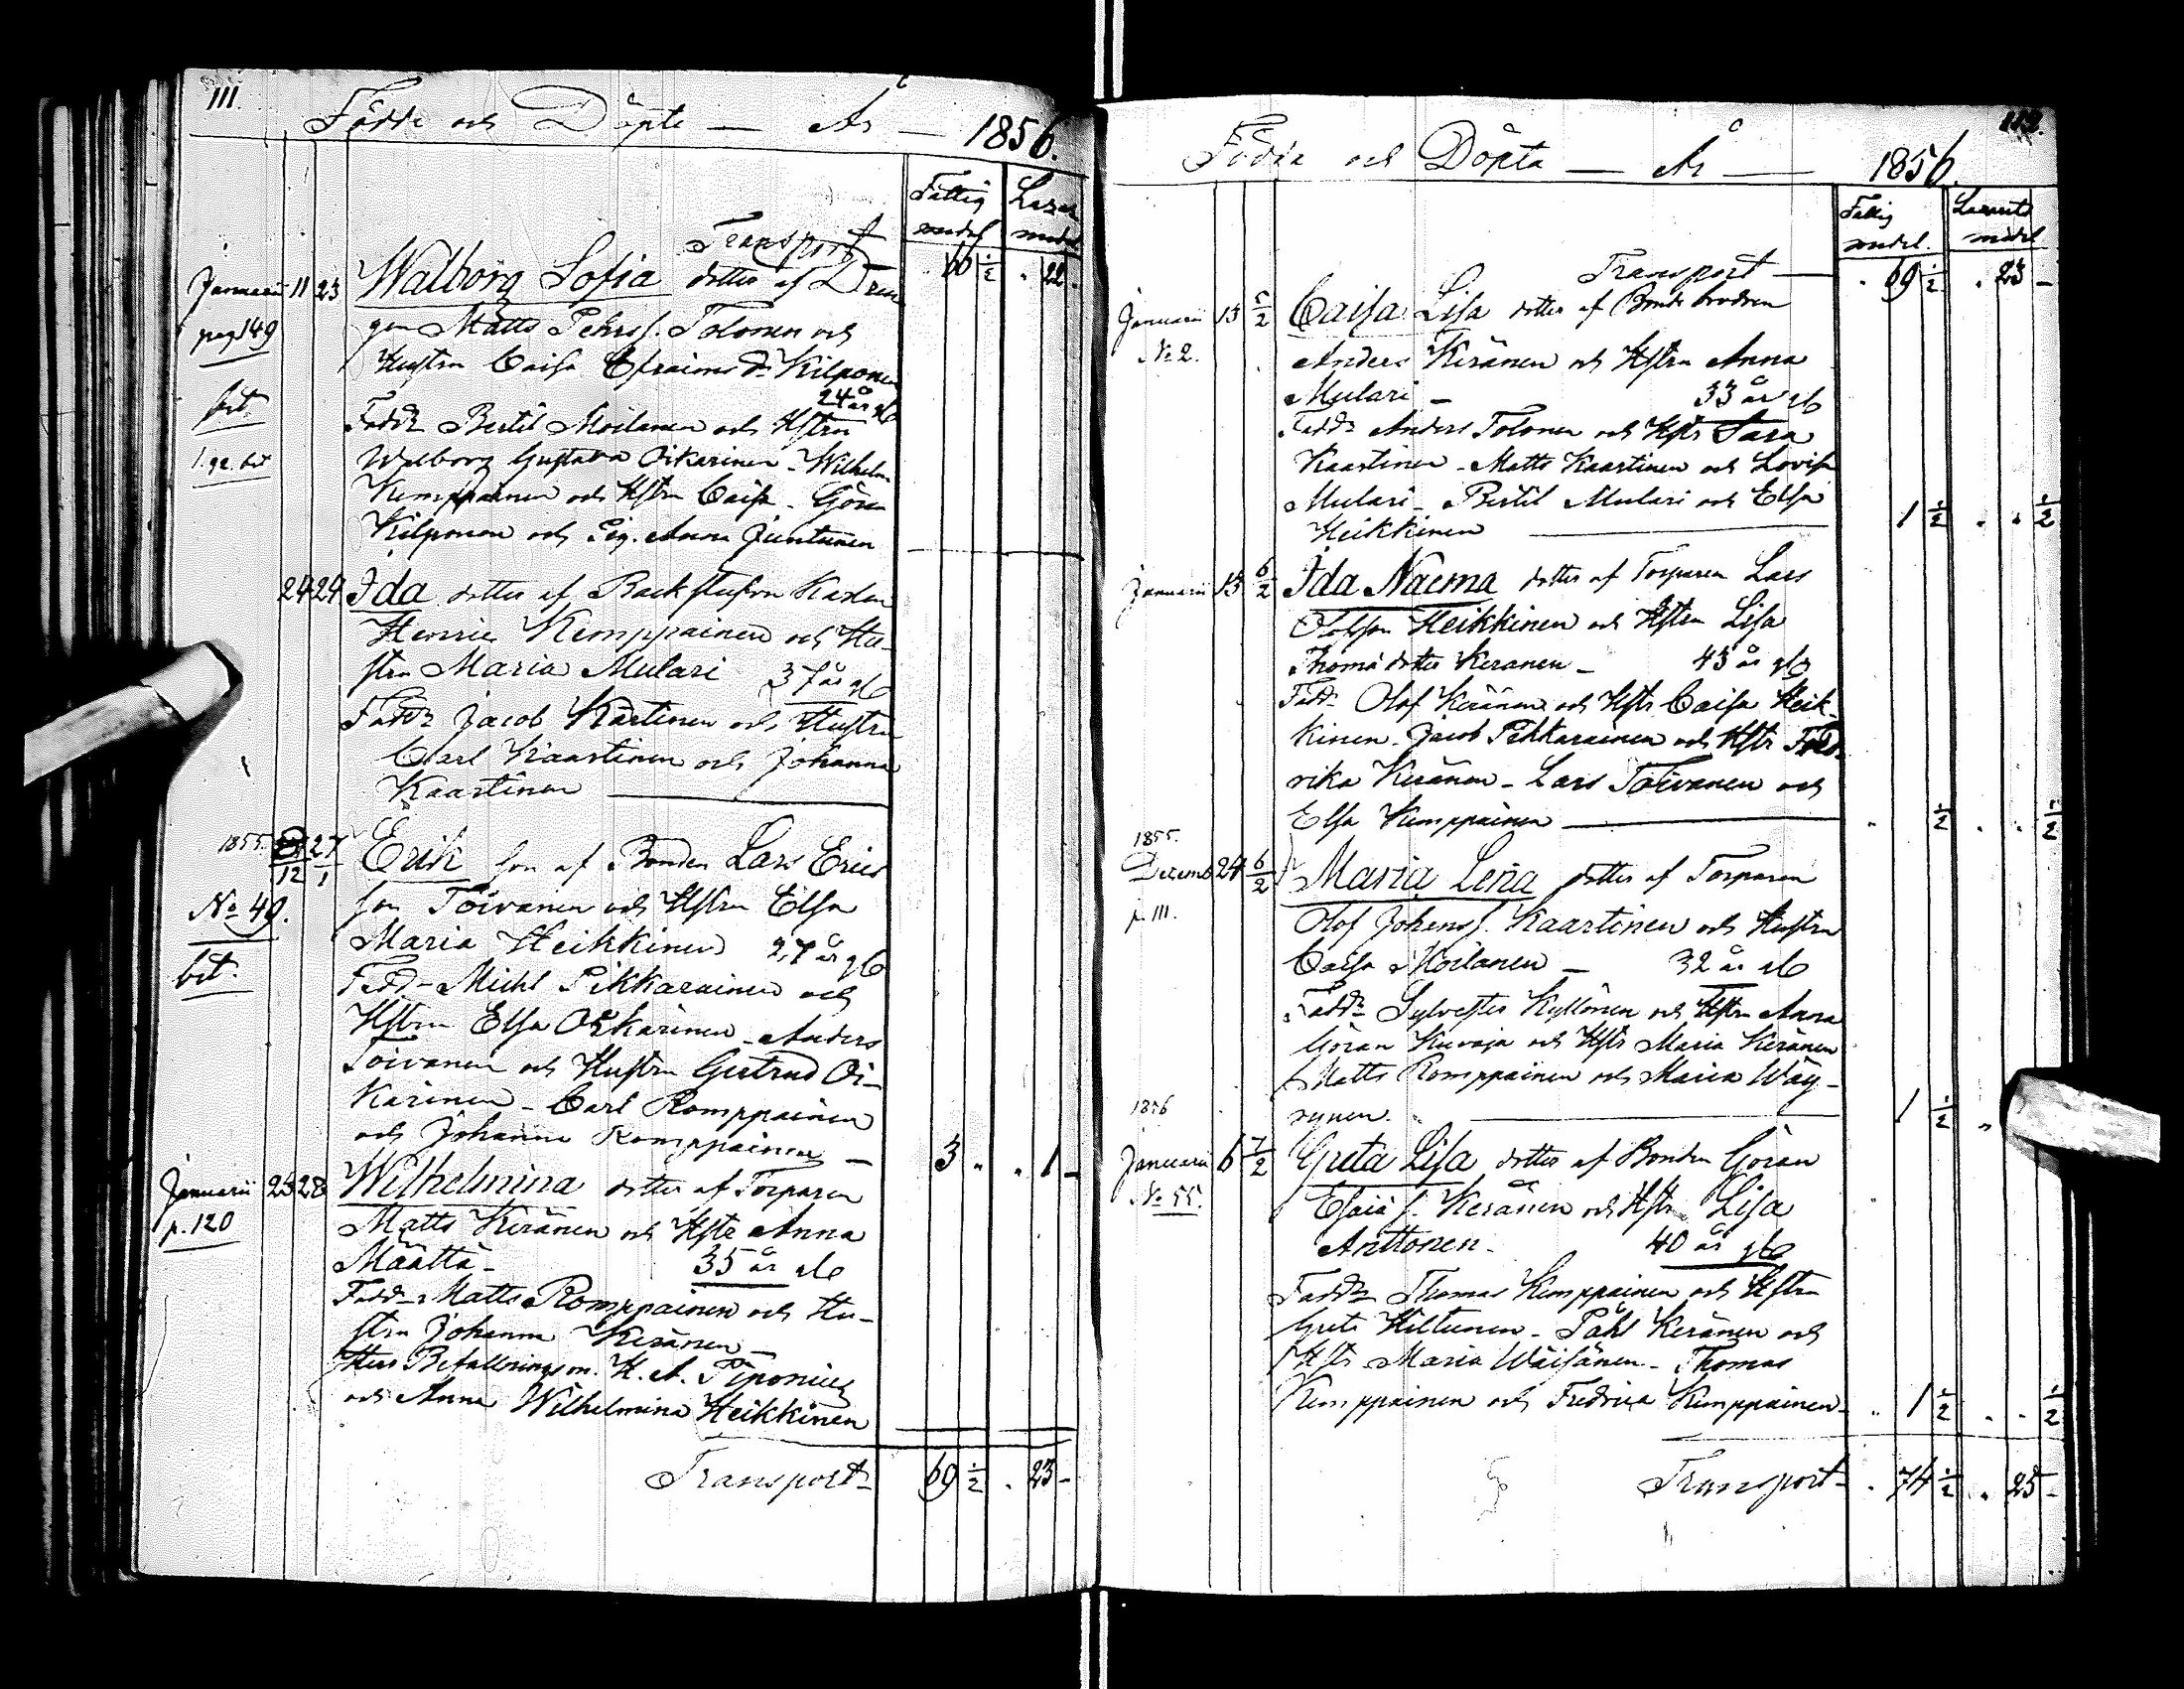 111.
Födde och Döpte — År — 1856.
Fattig medel
Transport
66 1/2 " 22 "
Januarii 11 23 Walborg Sofia dotter af Dren
pag 149 gen Matts Pehrss. Tolonen och
Hustru Caisa Efraims dr Kilponen
24 år gl
bet. Faddr Bertil Moilanen och Hstru
Walborg Gustava Oikarinen - Wilhelm
Kemppainen och Hstru Caisa - Göran
Kilponen och Pig. Anna Juntunen
24 24 Ida dotter af Backstusu Karlen
Henric Kemppainen och Hu-
stru Maria Mulari 37 år gl
Faddr Jacob Kartinen och Hustru
Carl Kaartinen och Johanna
Kaartinen
1855. 12 27/1 Erik son af Bonden Lars Erics
No 49. son Toivanen och Hstru Elsa
Maria Heikkinen 27 år gl
bet. Fadd- Michl Pikkarainen och
Hstru Elsa Oikarinen - Anders
Toivanen och Hustru Gertrud Oi-
karinen - Carl Romppainen
och Johanna Romppainen — 3 " " 1 -
Januarii 25 28 Wilhelmina dotter af Torparen
p. 120 Matts Keränen och Hstr Anna
Määttä - 35 år gl
Fadd- Matts Romppainen och Hu-
stru Johanna Keränen -
Herr Befallningsm. H. A.
och Anna Wilhelmina Heikkinen
Transport - 69 1/2 " 23 -
112.
Födda och Döpta — År — 1856.
Fattig medel. Lazaretts medel
Transport — " 69 1/2 " 23 -
Januarii 13 5/2 Caisa Lisa dotter af Bonde brodren
No 2. Anders Keränen och Hstru Anna
Mulari - 33 år gl
Faddr Anders Tolonen och Hstr Sara
Kaartinen - Matts Kaartinen och Lovisa
Mulari - Bertil Mulari och Elsa
Heikkinen — 1 1/2 " " 1/2
Januarii 15 6/2 Ida Naema dotter af Torparen Lars
Olofson Heikkinen och Hstru Lisa
Thomä dotter Keranen - 43 år gl
Fadd- Olof Keränen och Hstr Caisa Heik-
kinen - Jacob Pikkarainen och Hstr Fred-
rika Keränen - Lars Toivanen och
Elsa Kemppainen — " 1/2 " " 1/2
1855.
Decemb 24 6/2 Maria Lena dotter af Torparen
p. 111. Olof Johanss. Kaartinen och Hustru
Caisa Moilanen - 32 år gl
Faddr Sylvester Kyllönen och Hstru Anna
Göran Kuvaja och Hstr Maria Keränen
Matts Romppainen och Maria Wäy-
rynen. — 1 1/2 "
1856
Januarii 6 7/2 Greta Lisa dotter af Bonden Göran
No 55. Esaiä s. Keränen och Hstr Lisa
Anttonen - 40 år gl
Faddr Thomas Kemppainen och Hstru
Greta Hiltunen - Påhl Keränen och
Hstr Maria Wäisänen - Thomas
Kemppainen och Fredrica Kemppainen - " 1 1/2 " " 1/2
Transport - " 74 1/2 " 25 -